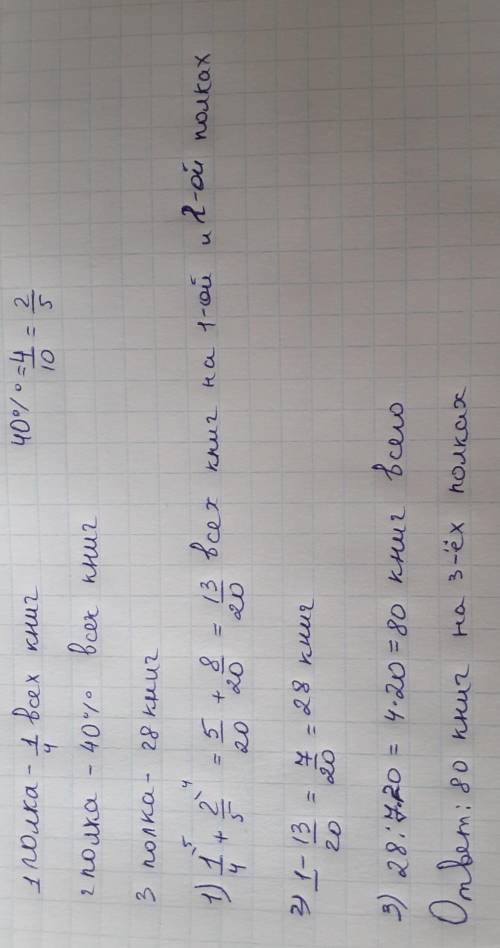 1 полка - 1/4 всех книг 40% = 4/10 = 2/5
2 полка - 40% всех книг
3 полка - 28 книг
1) 1/4⁵ + 2/5⁴ = 5/20 + 8/20 = 13/20 всех книг на 1-ой и 2-ой полках
2) 1 - 13/20 = 7/20 = 28 книг
3) 28:7·20 = 4·20 = 80 книг всего
Ответ: 80 книг на 3-ёх полках